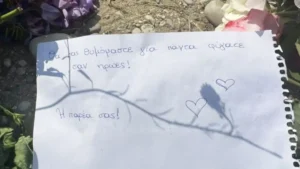 θυμόμαστε για πάντα φύγατε
σαν ήρωες!
Η παρέα σας!